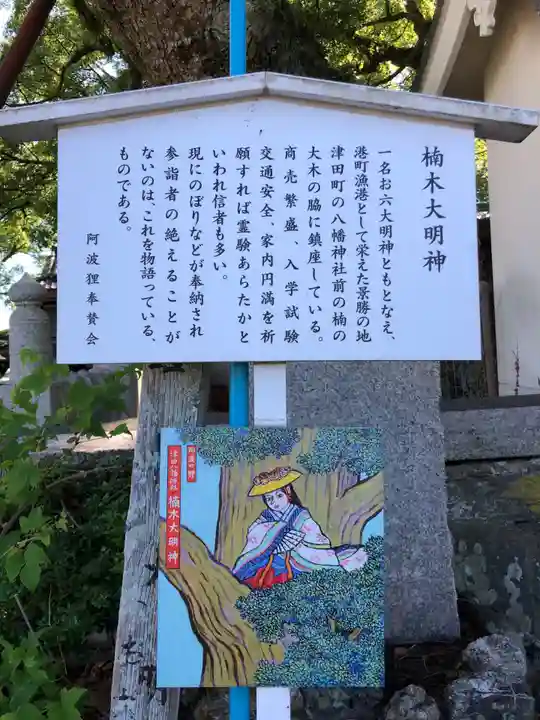 楠木大明神
一名お六大明神ともとなえ、
港町漁港として栄えた景勝の地
津田町の八幡神社前の楠の
大木の脇に鎮座している。
商売繁盛、入学試験
交通安全、家内円満を祈
願すれば霊験あらたかと
いわれ信者も多い。
現にのぼりなどが奉納され
参詣者の絶えることが
ないのは、これを物語っている、
ものである。
阿波狸奉賛会
阿波の狸
津田八幡神社
楠木大明神